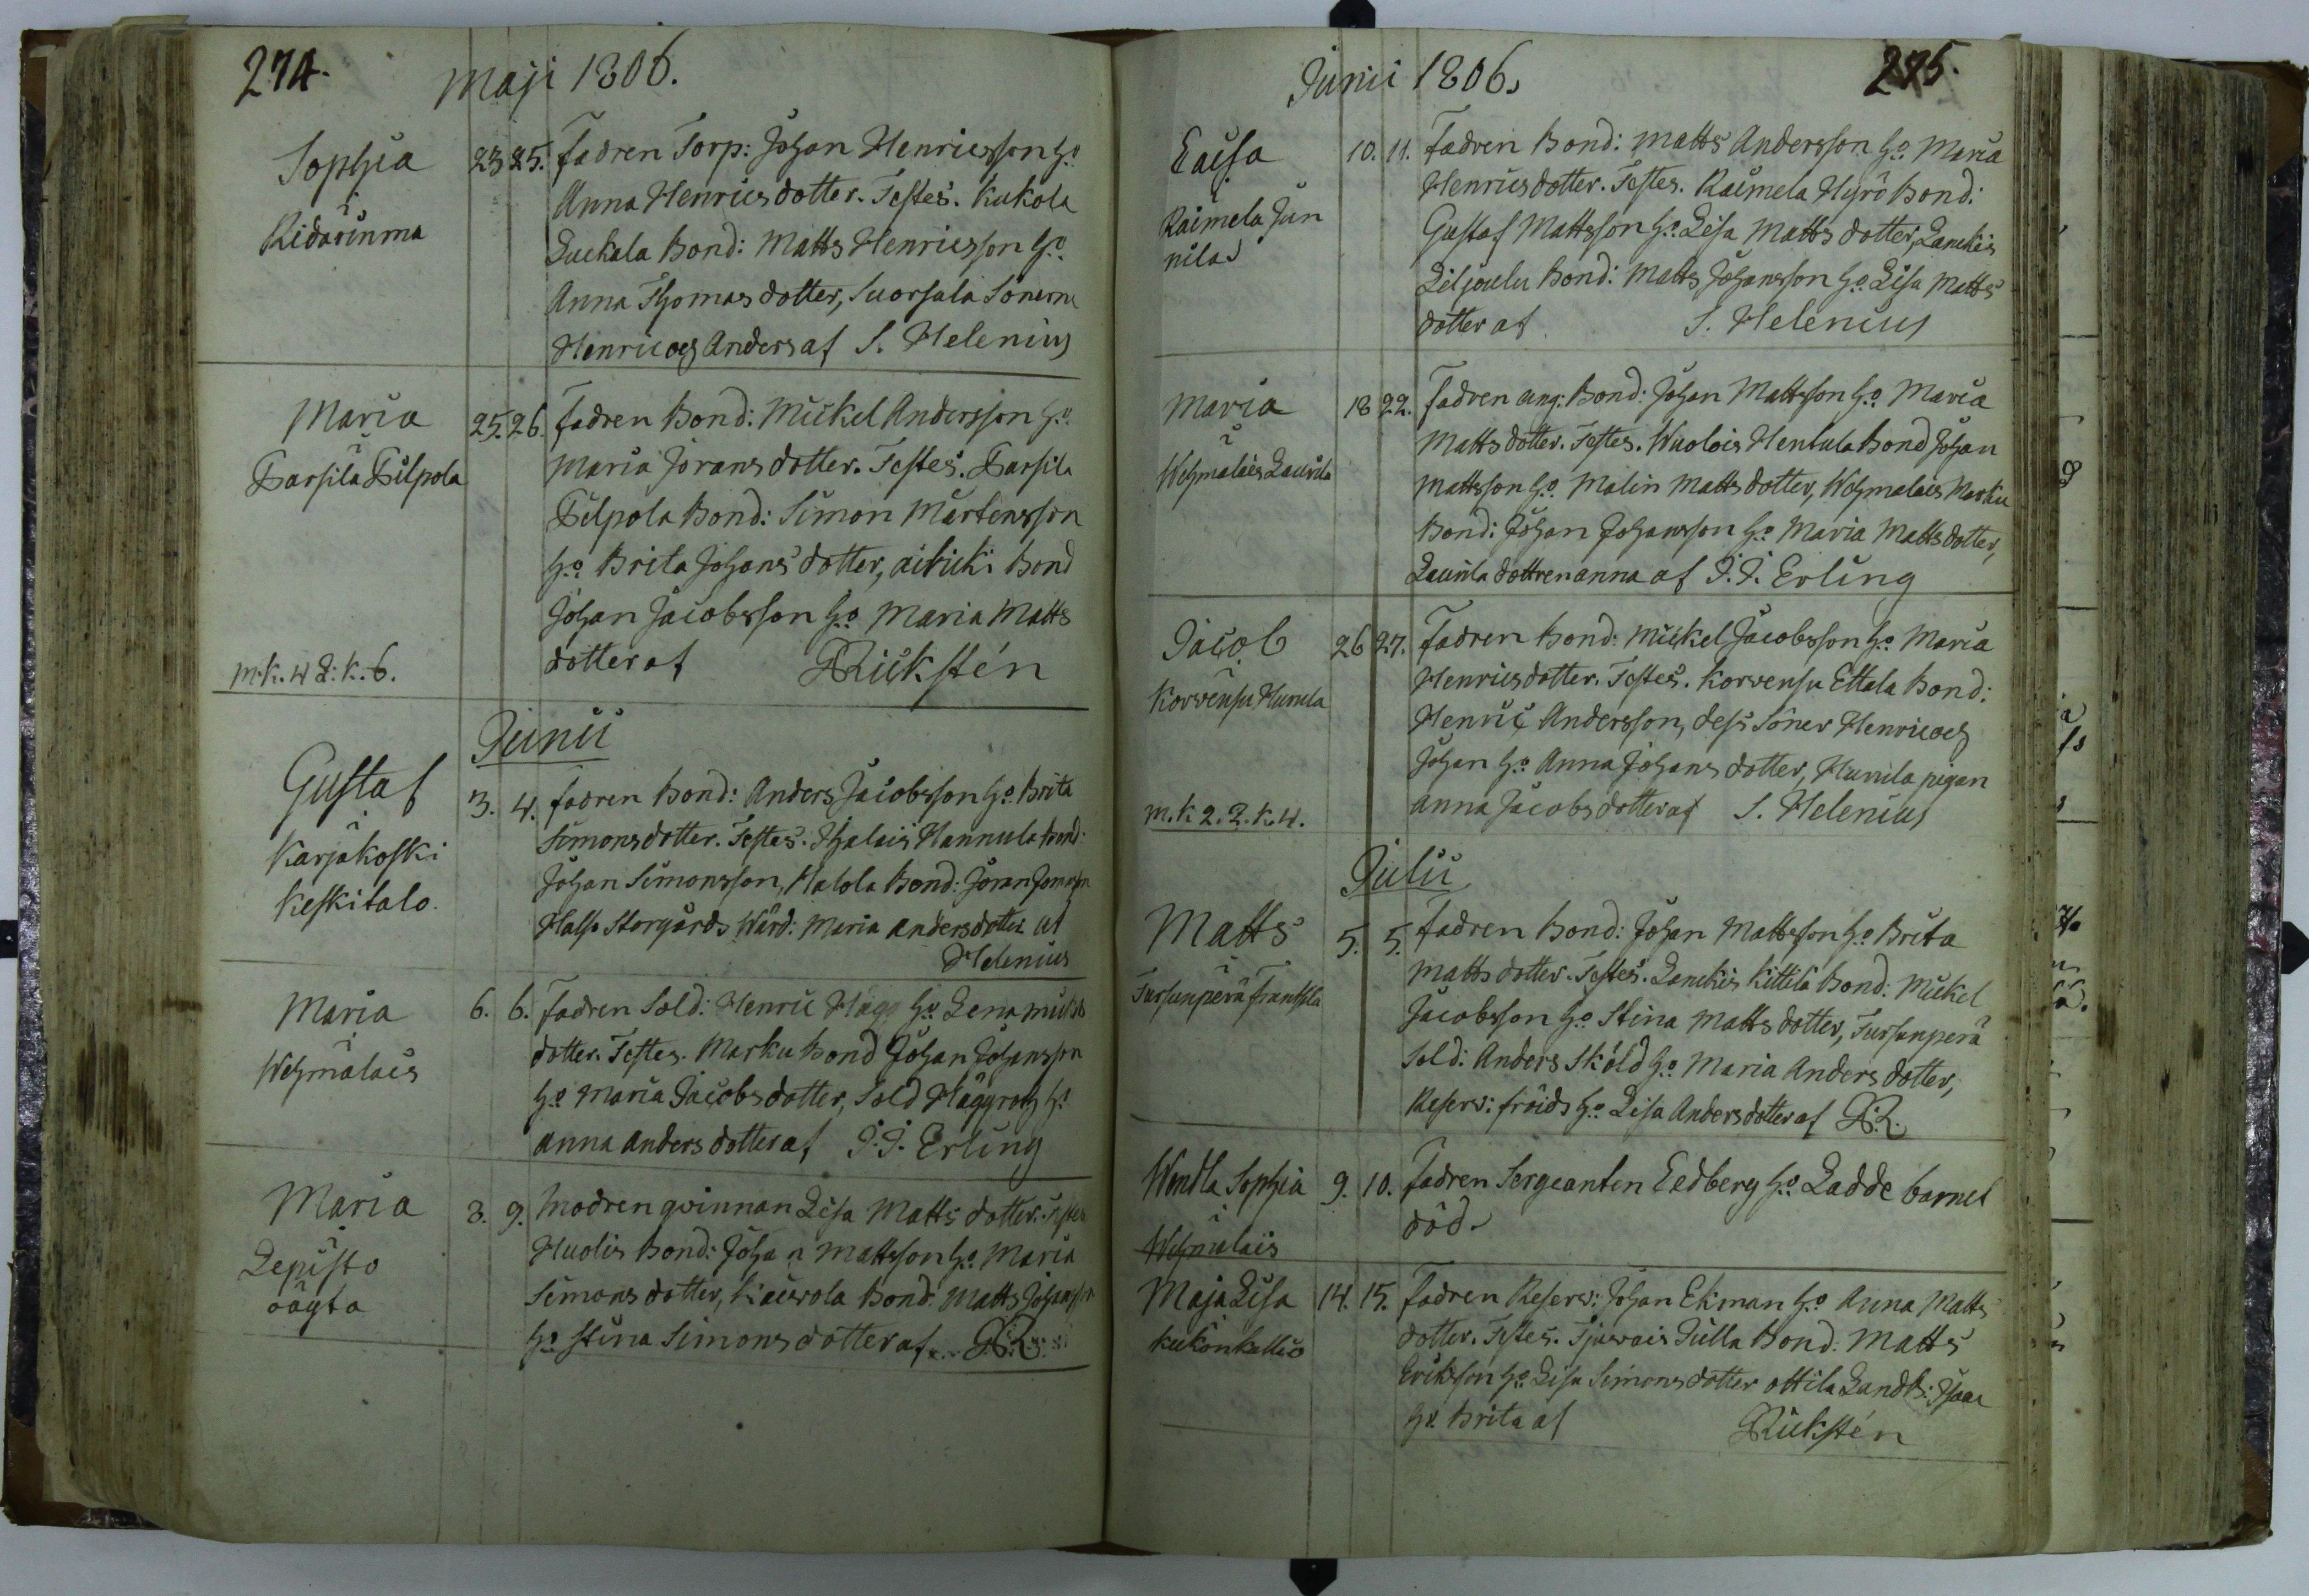 274.
Maji 1806.
Sophia
i
Ridarinma
23 25. Fadren Torp: Johan Henricsson h:o
Anna Henricsdotter. Testes. Kukola
Luckala Bond: Matts Henricsson h:o
Anna Thomasdotter, Suorsala Sönerne
Henric och Anders af S. Helenius
Maria
i
Parsila Pilpola
25. 26. Fadren Bond: Mickel Andersson h:o
Maria Jörans dotter. Testes. Parsila
Pilpola Bond: Simon Mårtensson
h:o Brita Johans dotter, Bond
Johan Jacobsson h:o Maria Matts
dotter af Rickstén
m.k. 4 q: k. 6.
Junii
Gustaf
i
Karjakoski
Keskitalo.
3. 4. fadren Bond: Anders Jacobsson h:o Brita
Simonsdotter. Testes. Hannula bond:
Johan Simonsson, Bond: Jöran
Storgårds Wärd: Maria Andersdotter af
Helenius
Maria
i
Wehmalais
6. 6. Fadren Sold: Henric Hägg h:o Lena
dotter. Testes. Marku Bond Johan Johansson
h:o Maria Jacobsdotter, Sold h:o
Anna Anders dotter af J.J. Erling
Maria
i
Lepistö
oägta
8. 9. Modren qvinnan Lisa Matts dotter. Testes
Huolis Bond: Johan Mattsson h:o Maria
Simons dotter, Kaurola Bond: Matts Johansson
h:o Stina Simonsdotter af G.R.
Junii 1806.
275.
Caisa
i
Raimela Jun
nila
10. 11. Fadren Bond: Matts Andersson h:o Maria
Henricsdotter. Testes. Raimela Hyrö Bond:
Gustaf Mattsson h:o Lisa Matts dotter, Lanckis
Liljoulu Bond: Matts Johansson h:o Lisa Matts
dotter af S. Helenius
Maria
i
Wehmalais Laurila
18 22. Fadren ung: Bond: Johan Mattsson h:o Maria
Matts dotter. Testes. Wuolois Hentula Bond Johan
Mattsson h:o Malin Matts dotter, Wehmalais Marku
Bond: Johan Johansson h:o Maria Matts dotter,
Laurila dottren anna af J.J. Erling
Jacob
i
Korvensu Hunila
26 27. Fadren Bond: Mickel Jacobsson h:o Maria
Henricsdotter. Testes. Korvensu Ettala Bond:
Henric Andersson, dess Söner Henric och
Johan h:o Anna Johans dotter, Hunila pigan
anna Jacobsdotter af S. Helenius
m.k 2. q. k. 4.
Julii
Matts
i
Tursunperä Franssila
5. 5. Fadren Bond: Johan Mattsson h:o Brita
Matts dotter. Testes. Lanckis Kittilä Bond: Mickel
Jacobsson h:o Stina Matts dotter, Tursunperä
Sold: Anders Sköld h:o Maria Anders dotter,
Reserv: fröid h:o Lisa Andersdotter af G.R.
Wendla Sophia
i
Wehmalais
9. 10. Fadren Sergeanten Cedberg h:o Ladde barnet
död.
Maja Lisa
Kukonkallio
14. 15. Fadren Reserv: Johan Ekman h:o Anna Matts
dotter. Testes. Tjurvais Julla Bond: Matts
Ericsson h:o Lisa Simonsdotter ottila Landb: Isaac
h:o Brita af Rickstén